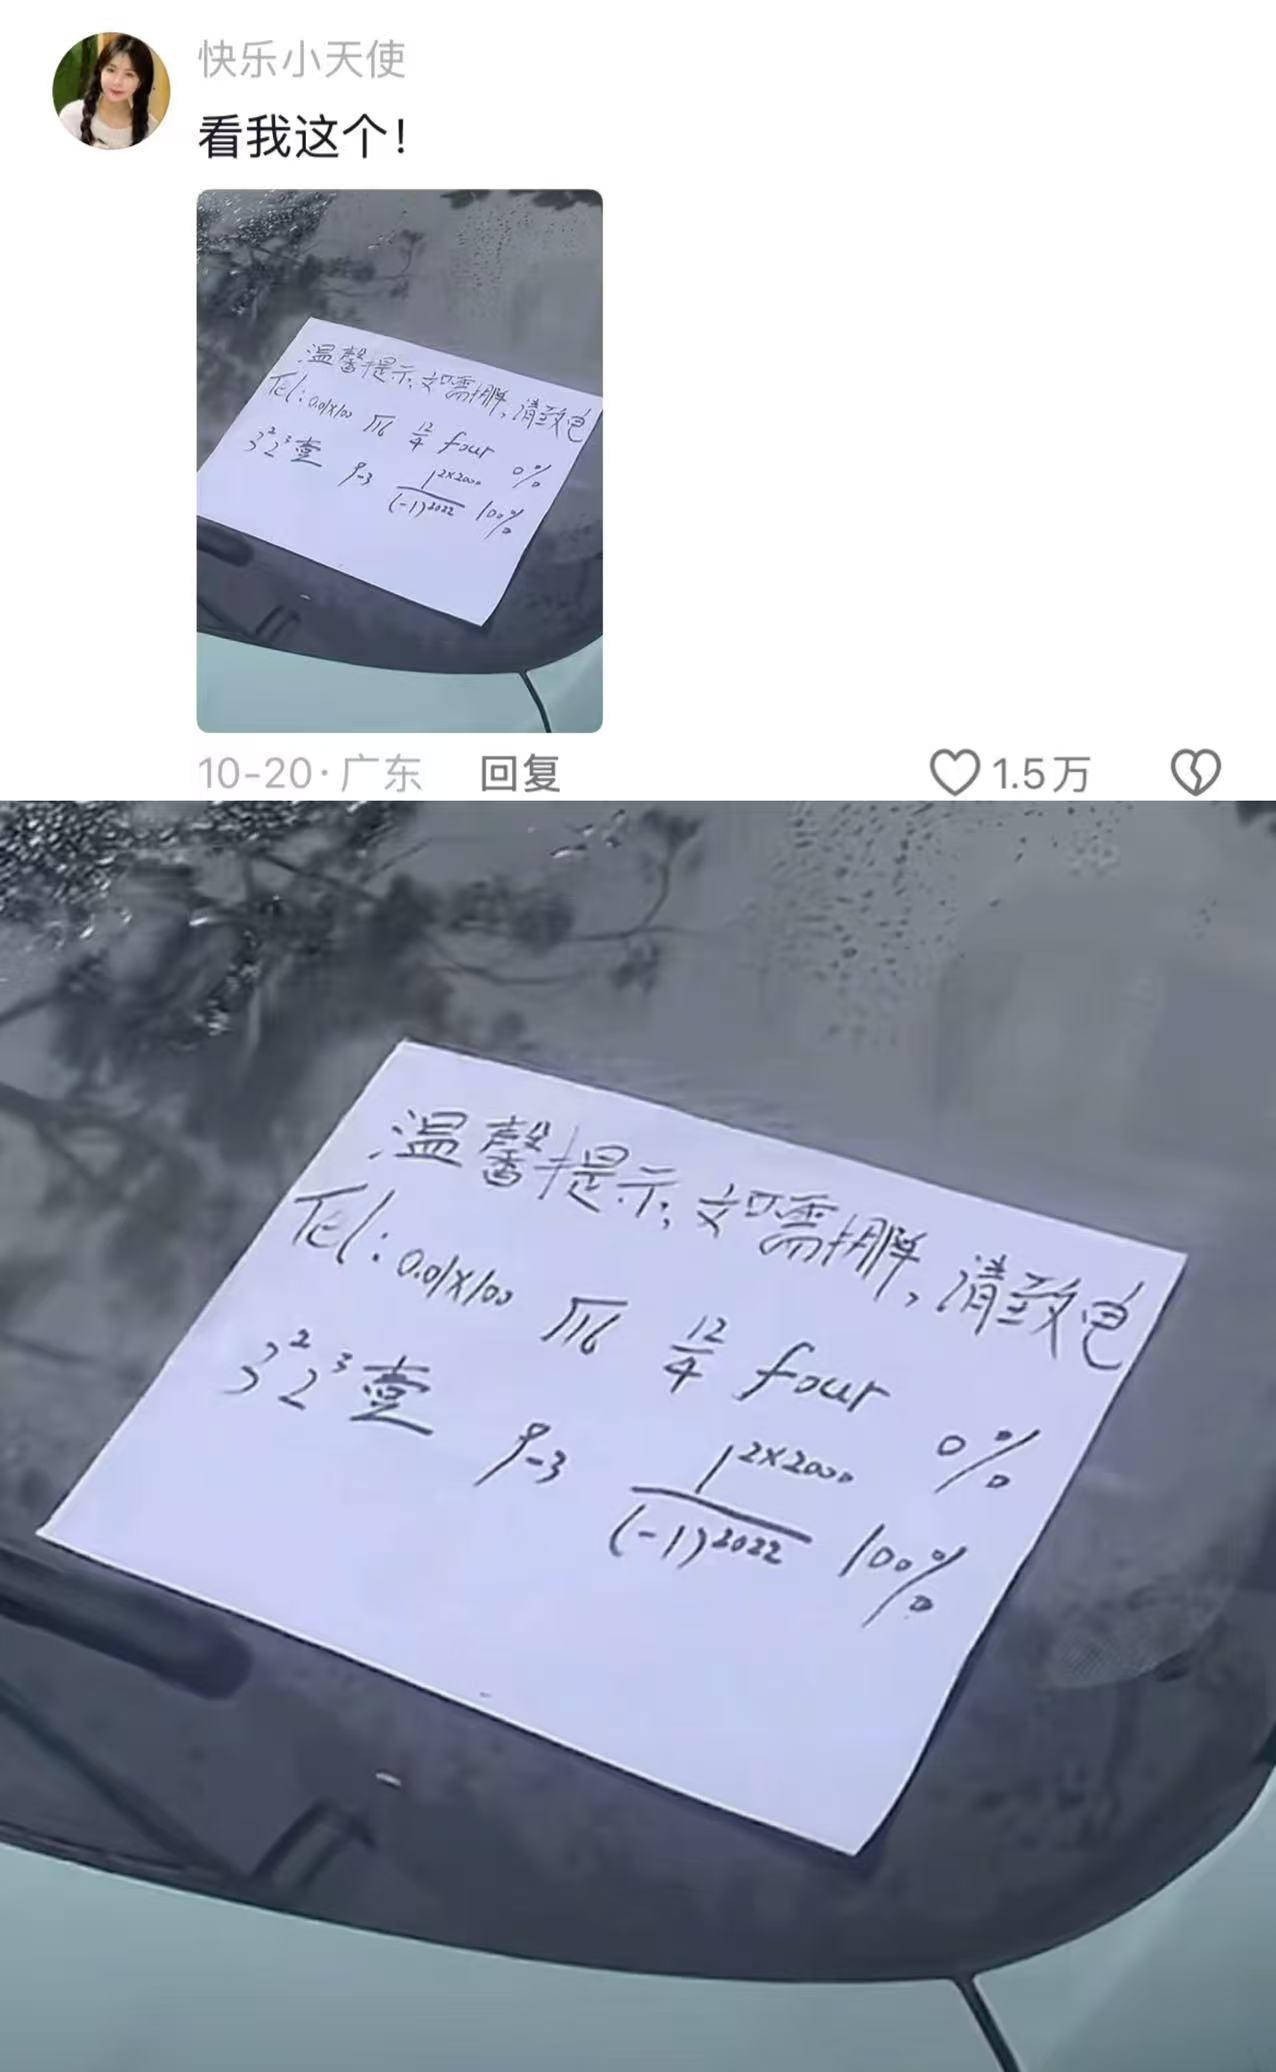 快乐小天使
看我这个！
温馨提示：如需挪胖，清致电
Tel：0.01X100 √16 12/4 four 0%
3² 2³ 壹 9-3 1^2X2000/(-1)^2022 100%
10-20·广东 回复 1.5万
温馨提示：如需挪胖，清致电
Tel：0.01X100 √16 12/4 four 0%
3² 2³ 壹 9-3 1^2X2000/(-1)^2022 100%